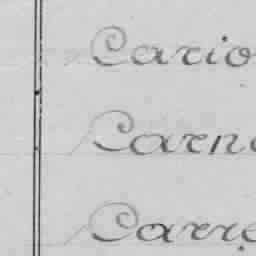 Cario
Carne
Carre